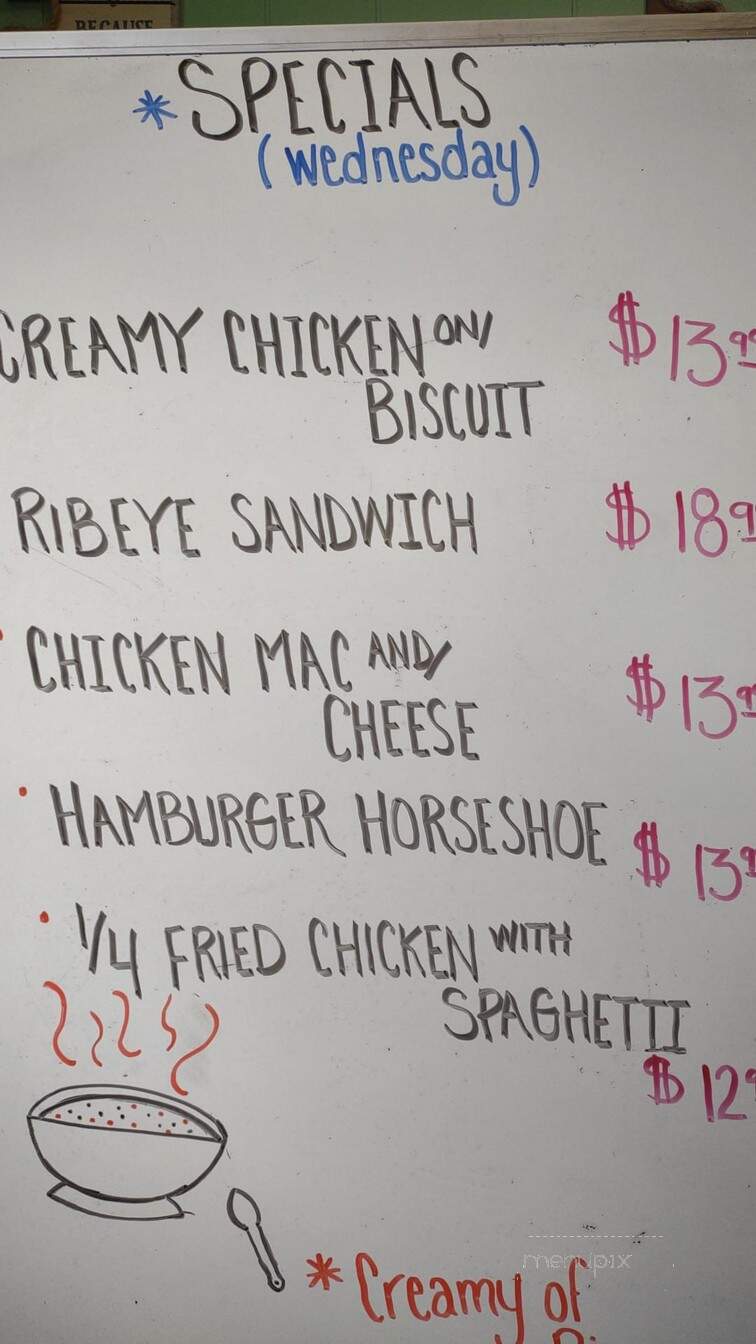 BECAUSE
* SPECIALS
(wednesday)
CREAMY CHICKEN ON/ $13.99
BISCUIT
RIBEYE SANDWICH $18.9
CHICKEN MAC AND/
CHEESE $13.9
• HAMBURGER HORSESHOE $13.9
• 1/4 FRIED CHICKEN WITH
SPAGHETTI
$12.9
menupix
* Creamy of